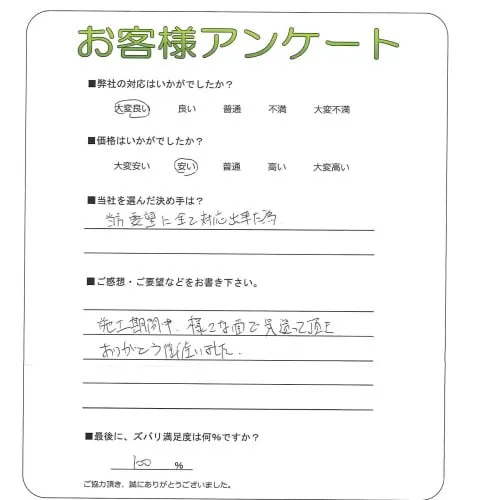 お客様アンケート
■弊社の対応はいかがでしたか？
大変良い 良い 普通 不満 大変不満
■価格はいかがでしたか？
大変安い 安い 普通 高い 大変高い
■当社を選んだ決め手は？
当方要望に全て対応出来た為
■ご感想・ご要望などをお書き下さい。
施工期間中、様々な面で見送って頂き
ありがとう御座いました。
■最後に、ズバリ満足度は何%ですか？
100 %
ご協力頂き、誠にありがとうございました。